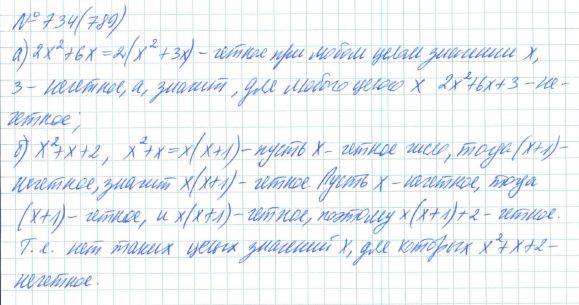 № 734(789)
а) 2x²+6x=2(x²+3x) – четное при любом целом значении x,
3 – нечетное, а, значит, для любого целого x 2x²+6x+3 – не-
четное;
б) x²+x+2, x²+x=x(x+1) – пусть x – четное число, тогда (x+1) –
нечетное, значит x(x+1) – четное. Пусть x – нечетное, тогда
(x+1) – четное, и x(x+1) – четное, поэтому x(x+1)+2 – четное.
Т.е. нет таких целых значений x, для которых x²+x+2 –
нечетное.